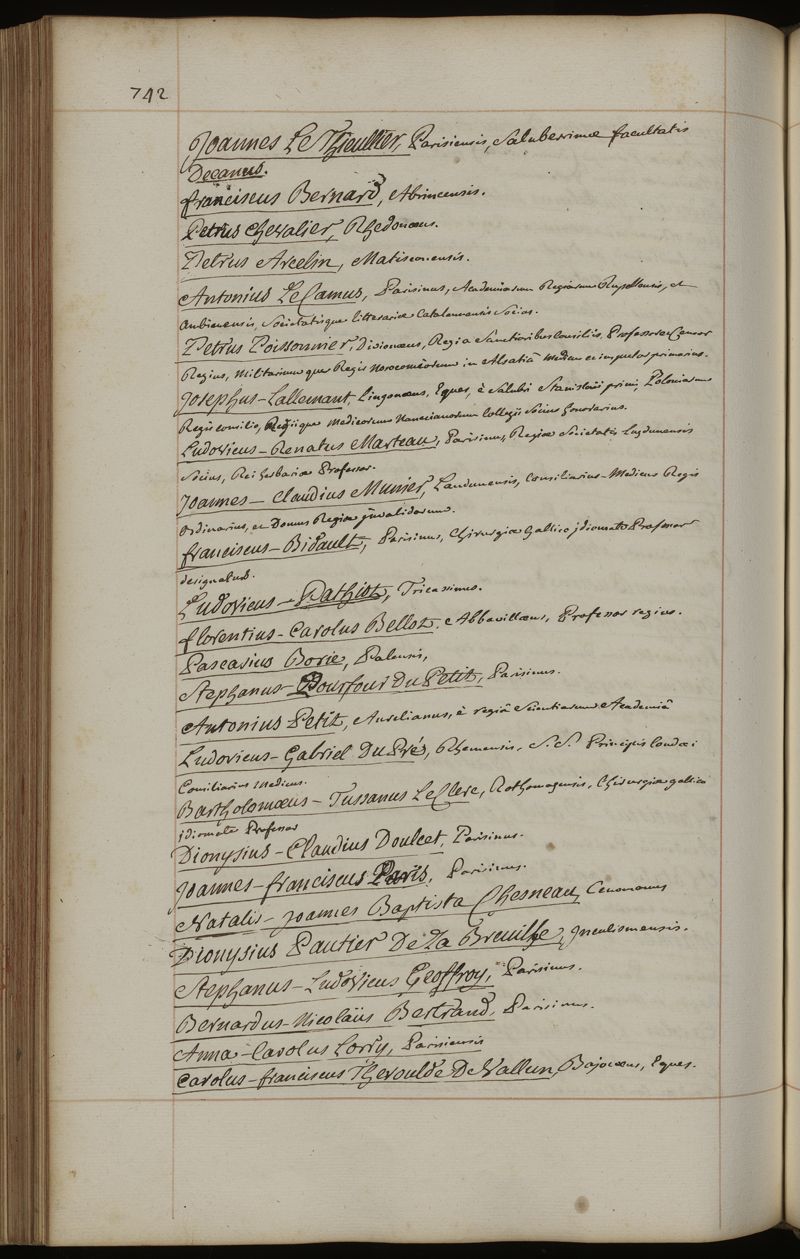 742
Joannes Le Thieullier, Parisiensis, Saluberrimæ facultatis
Decanus.
franciscus Bernard, Abrincensis.
Petrus Chevalier, Rhedonæus.
Petrus Arcelin, Matisconensis.
Antonius Le Camus, Parisinus, Academiarum Regiarum Rupellensis, et
Ambianensis, Societatisque litterariæ Catalaunensis Socius.
Petrus Poissonnier, Divionæus, Regi a Sanctioribus Consiliis, Professor et Censor
Regius, Militarium que Regis Nosocomiorum in Alsatiâ Medicus primarius.
Josephus-Lallemant, Lingonæus, Eques, è Salubri Stanislaii primi, Poloniarum
Regis consilio, Regiique Medicorum Nanceianorum Collegii Socius honorarius.
Ludovicus-Renatus Marteau, Parisinus, Regiæ Societatis Lugdunensis
Socius, Rei herbariæ Professor.
Joannes-Claudius Munier, Laudunensis, Consiliarius-Medicus Regis
Ordinarius, et Domus Regiæ jnvalidorum.
franciscus-Bidault, Parisinus, Chirurgiæ Gallico jdiomate Professor
designatus.
Ludovicus-Pathiot, Tricassinus.
florentius-Carolus Bellot, Abbavillæus, Professor regius.
Pascasius Borie, Palensis,
Stephanus-Pourfour Du Petit, Parisinus.
Antonius Petit, Aurelianus, è regiâ Scientiarum Academiâ
Ludovicus-Gabriel Du Pré, Rhemensis, S.S. Principis Condæi
Consiliarius Medicus.
Bartholomæus-Tussanus Le Clerc, Rothomagensis, Chirurgiæ gallico
jdiomate Professor
Dionysius-Claudius Doulcet, Parisinus.
Joannes-franciscus Paris, Parisinus.
Natalis-Joannes Baptista Chesneau, Cenomanus
Dionysius Pautier De La Breuille, Jnculismensis.
Stephanus-Ludovicus Geoffroy, Parisinus.
Bernardus-Nicolaüs Bertrand, Parisinus.
Anna-Carolus Lorry, Parisiensis
Carolus-franciscus Theroulde De Vallun, Bajocæus, Eques.